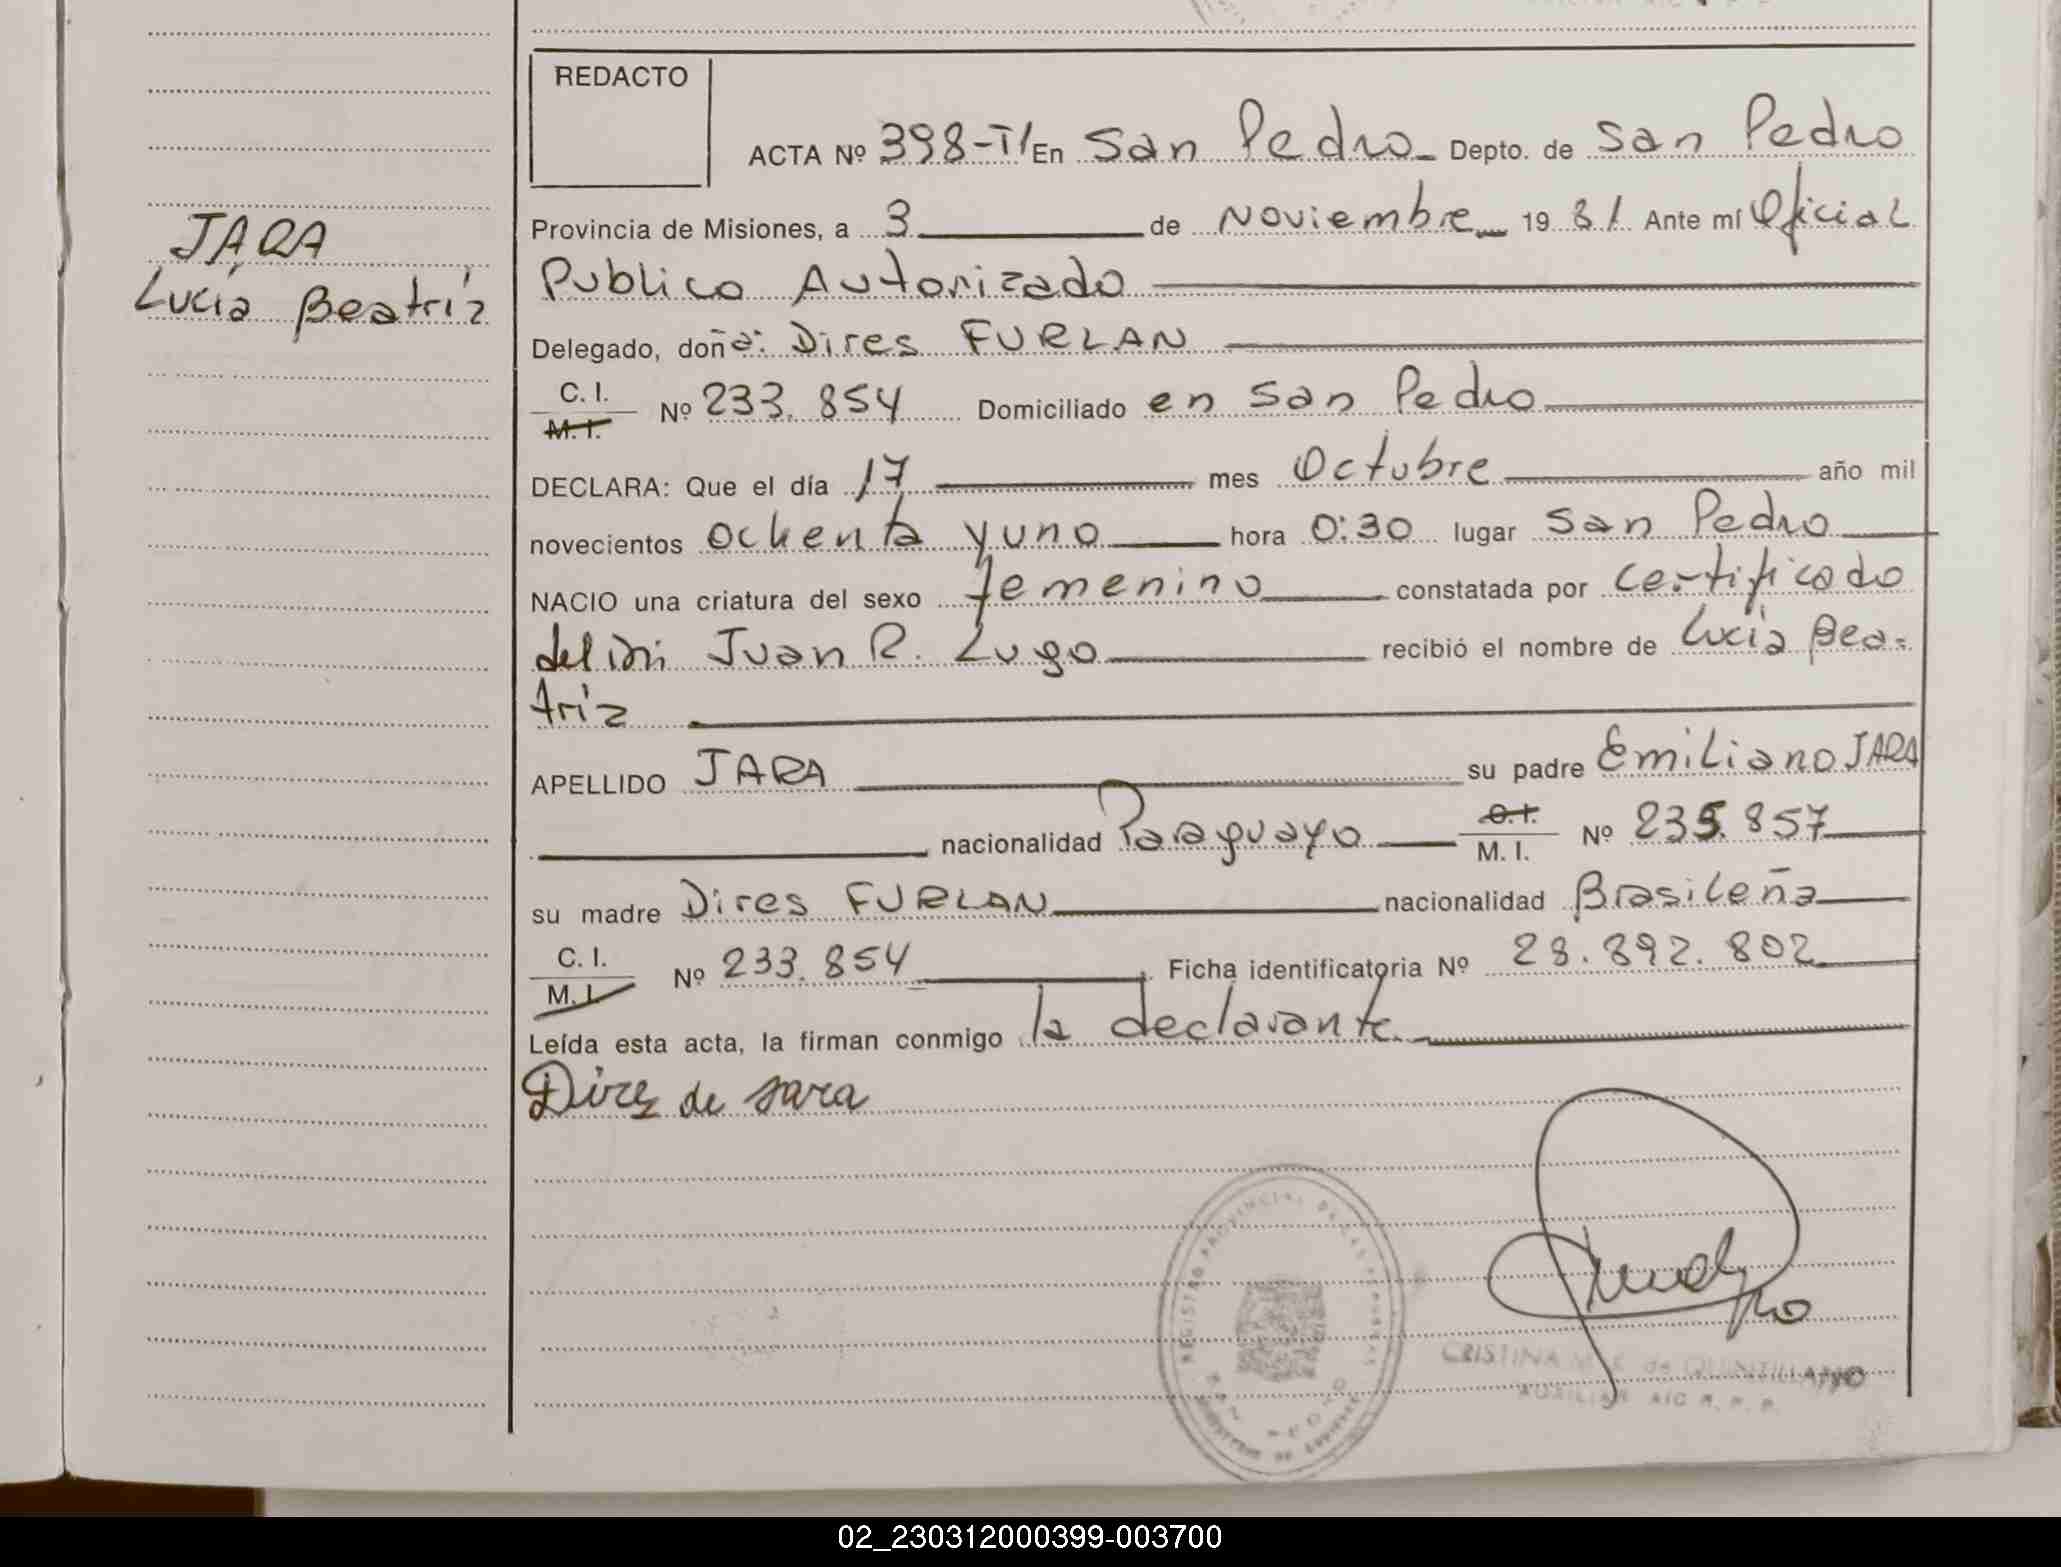 REDACTO
ACTA Nº 398-T/ En San Pedro Depto. de San Pedro
Provincia de Misiones, a 3 de Noviembre 1981. Ante mí Oficial
Publico Autorizado
JARA
Lucía Beatríz
Delegado, doña: Dires FURLAN
C. I.
M. I. Nº 233.854 Domiciliado en San Pedro
DECLARA: Que el día 17 mes Octubre año mil
novecientos ochenta y uno hora 0:30 lugar San Pedro
NACIO una criatura del sexo femenino constatada por certificado
del Dr. Juan R. Lugo recibió el nombre de Lucía Bea-
tríz
APELLIDO JARA su padre Emiliano JARA
nacionalidad Paraguayo C. I.
M. I. Nº 235.857
su madre Dires FURLAN nacionalidad Brasileña
C. I.
M. I. Nº 233.854 Ficha identificatoria Nº 28.892.802
Leída esta acta, la firman conmigo la declarante.
Dires de Jara
REGISTRO PROVINCIAL DE LAS PERSONAS
CRISTINA de QUINTILLANO
AUXILIAR A/C R. P. P.
02_230312000399-003700